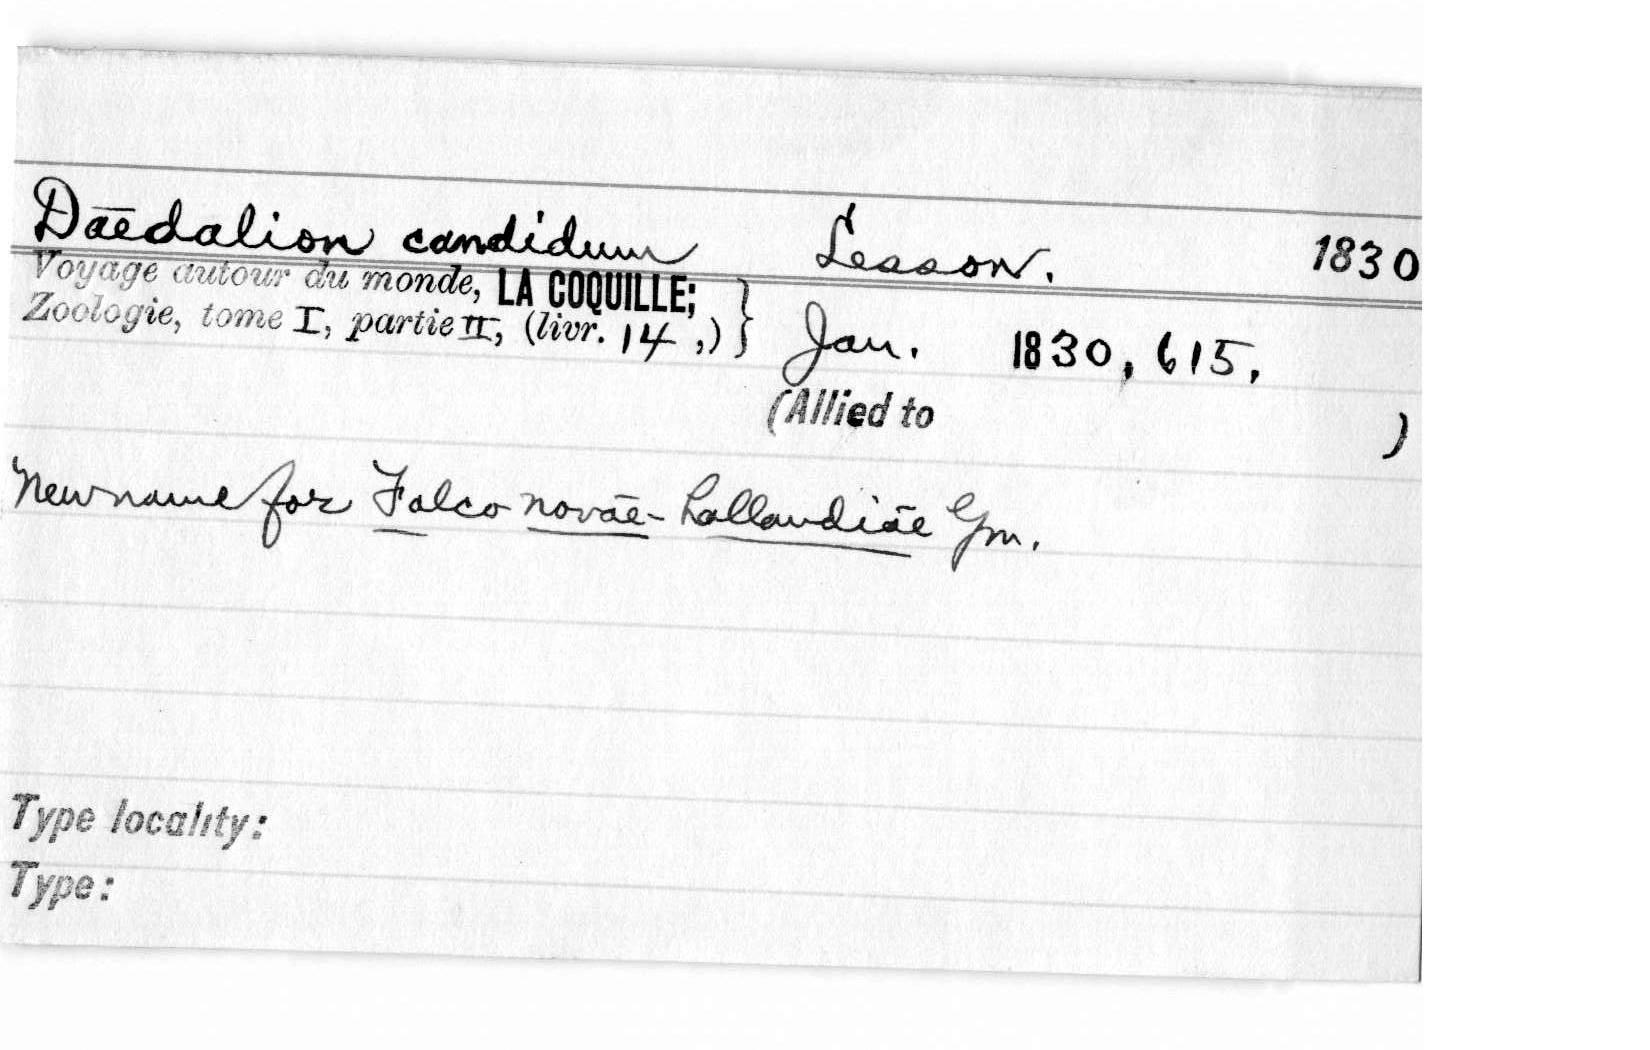 Daedalion candidum Lesson. 1830
Voyage autour du monde, LA COQUILLE;
Zoologie, tome I, partie II, (livr. 14,) } Jan. 1830, 615,
(Allied to )
New name for Falco novae-hollandiae Gm.
Type locality:
Type: